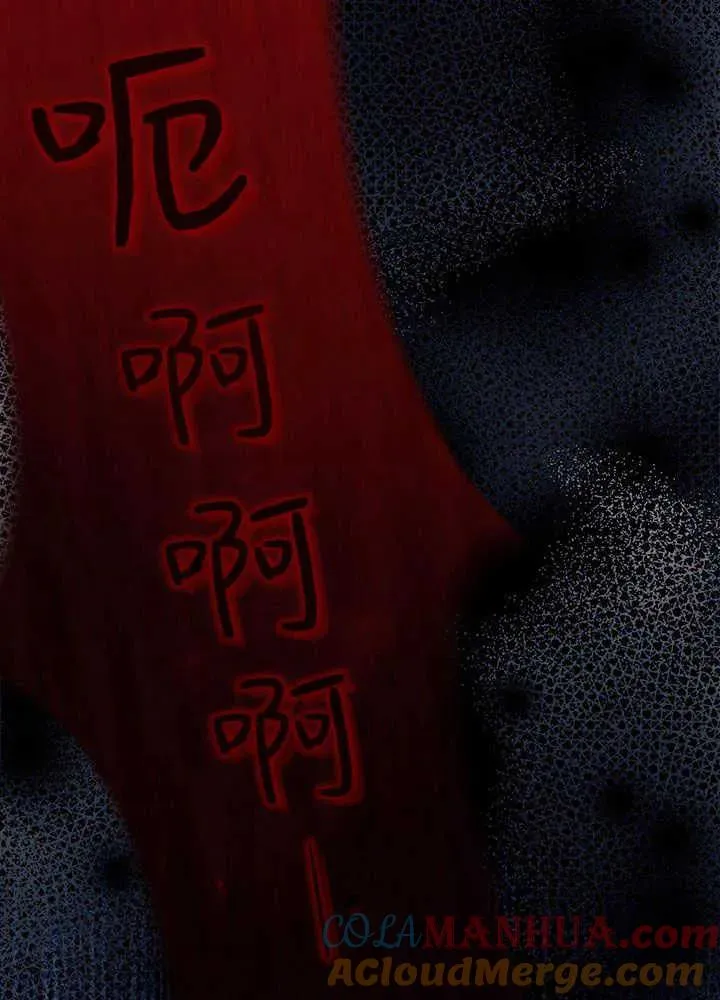 呃
啊
啊
啊
—
COLAMANHUA.com
AcloudMerge.com